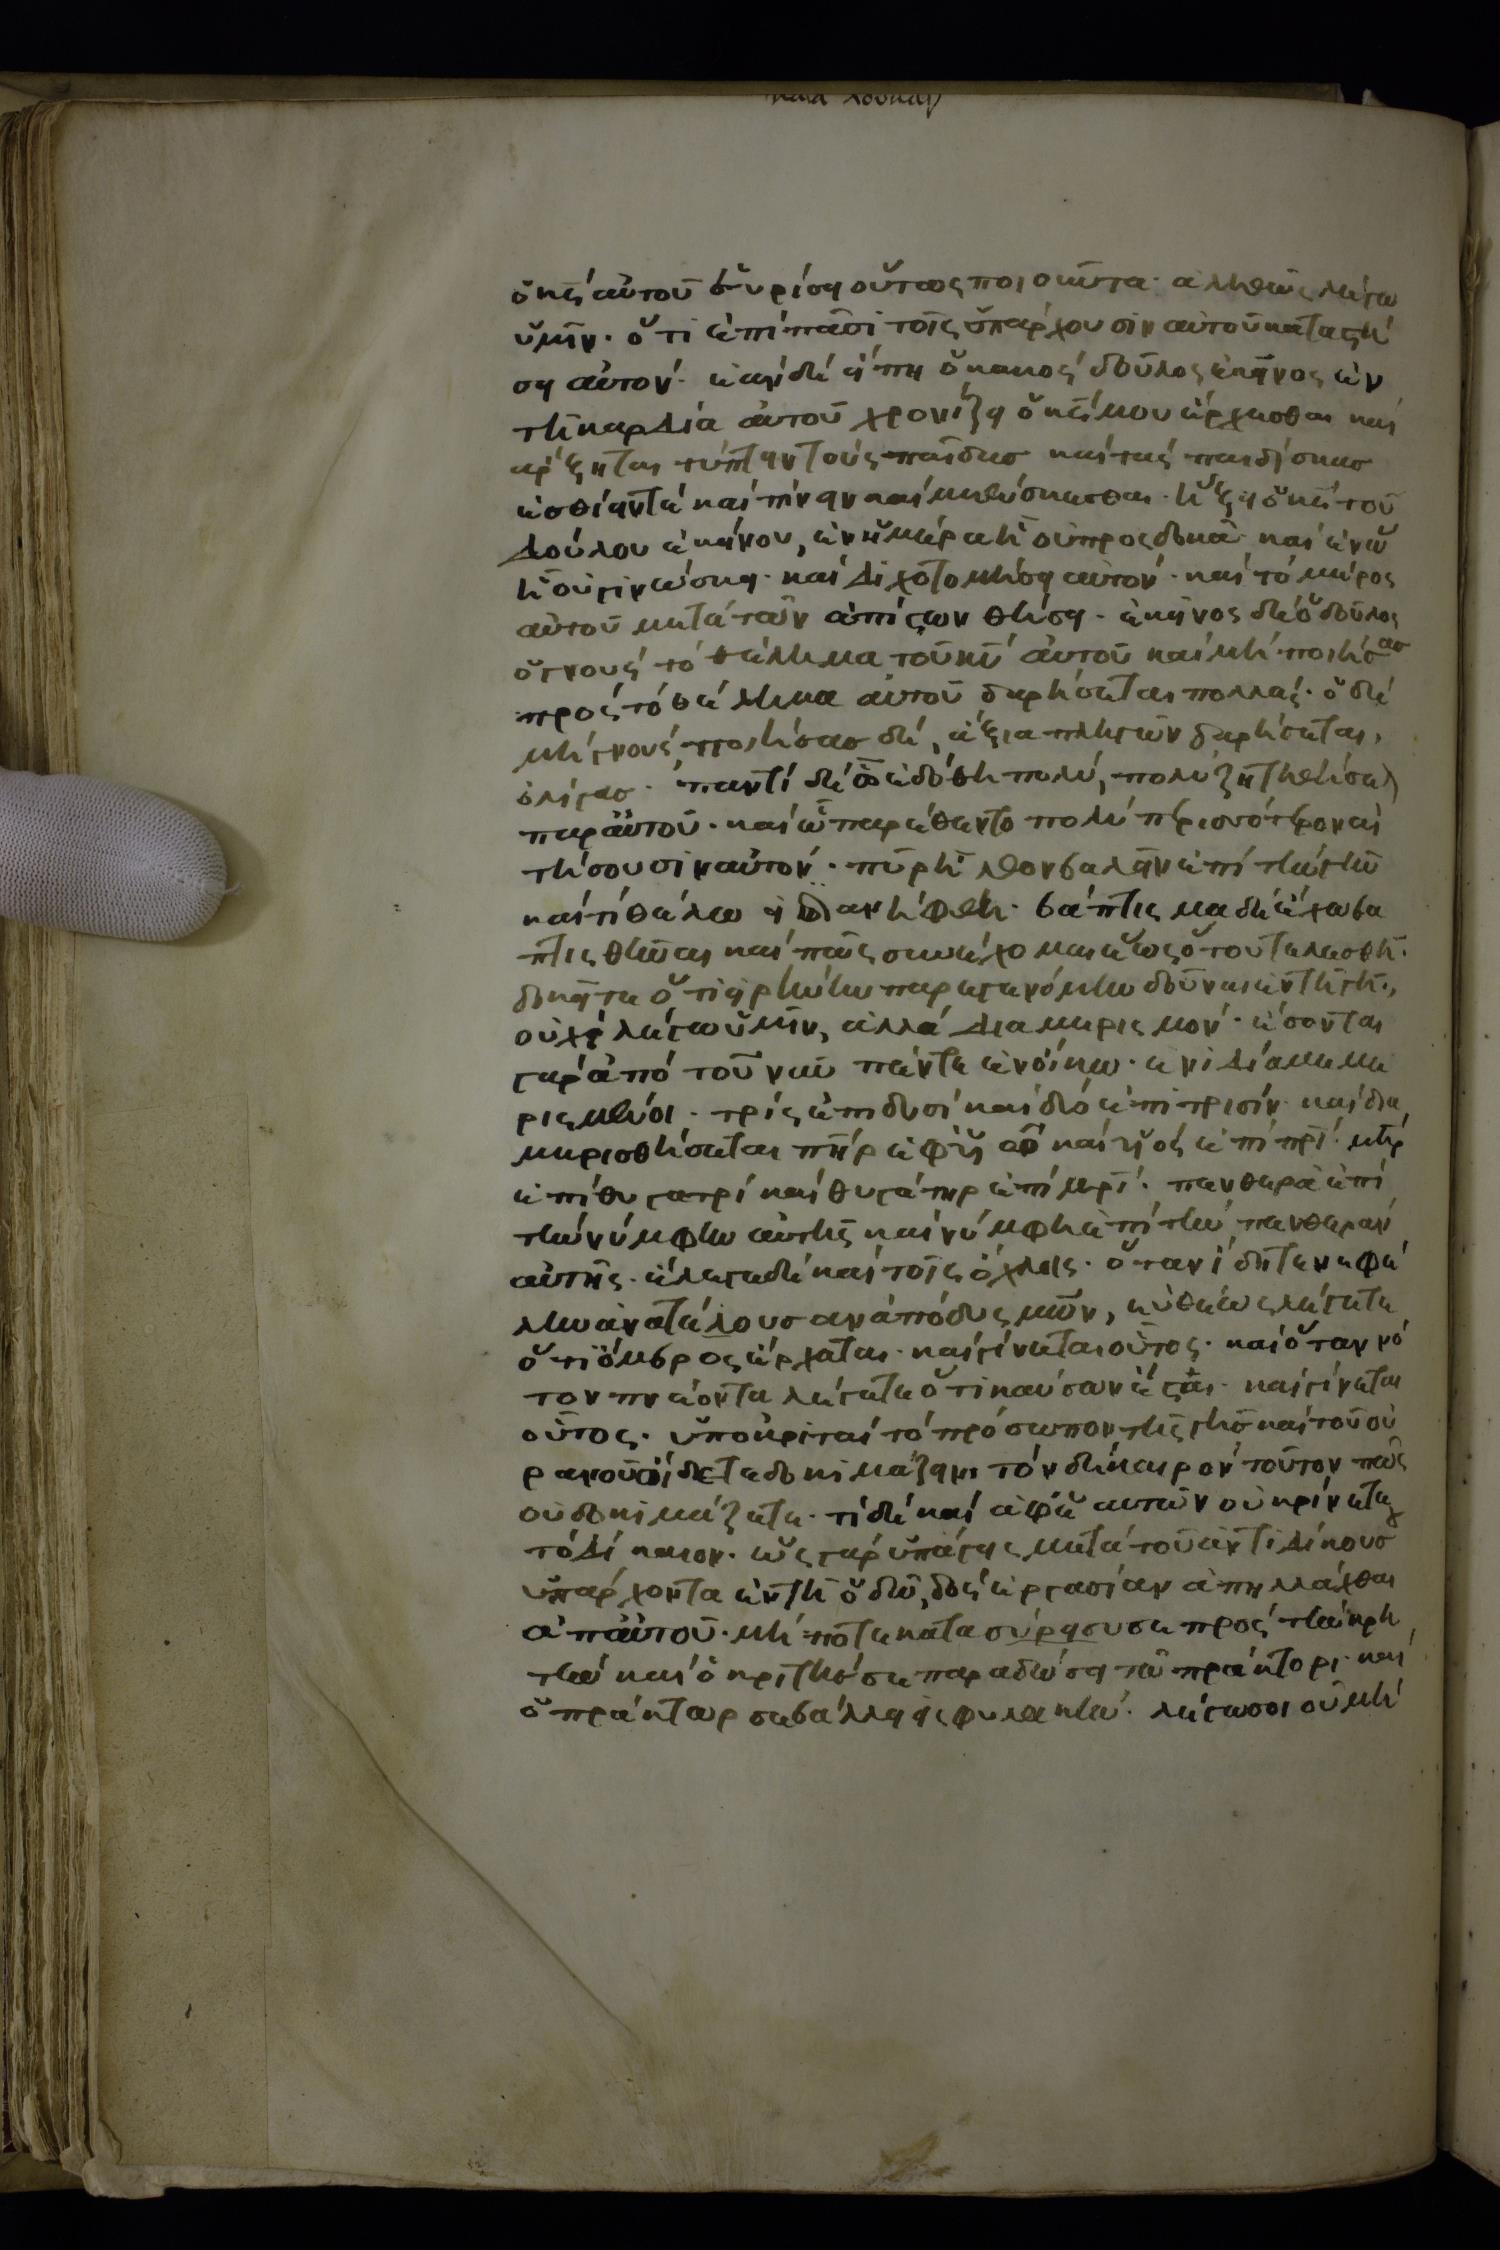 κατὰ λουκαν
ὁ κς αὐτοῦ εὑρίσει οὕτως ποιοῦντα· ἀληθῶς λέγω
ὑμῖν· ὅτι ἐπὶ πᾶσι τοῖς ὑπάρχουσιν αὐτοῦ καταστή
σει αὐτόν· ἐὰν δὲ εἴπη ὁ κακὸς δοῦλος ἐκεῖνος ἐν
τῆ καρδία αὐτοῦ χρονίζει ὁ κς μου ἔρχεσθαι καὶ
ἄρξηται τύπτειν τοὺς παῖδασ καὶ τὰς παιδίσκασ
ἐσθίειν τὲ καὶ πίνειν καὶ μεθύσκεσθαι· ἥξει ὁ κς τοῦ
δούλου ἐκείνου, ἐν ἡμέρα ἧ οὐ προςδοκᾶ· καὶ ἐν ὥρ
ἧ οὐ γινώσκει· καὶ διχοτομήσει αὐτόν· καὶ τὸ μέρος
αὐτοῦ μετὰ τῶν ἀπίστων θήσει· ἐκεῖνος δὲ ὁ δοῦλος
ὁ γνοὺς τὸ θέλημα τοῦ κυ αὐτοῦ καὶ μὴ ποιήσασ
πρὸς τὸ θέλημα αὐτοῦ δαρήσεται πολλάς· ὁ δὲ
μὴ γνοὺς, ποιήσασ δὲ, ἄξια πληγῶν δαρήσεται,
ὀλίγασ· παντὶ δὲ ὧ ἐδόθη πολύ, πολὺ ζητηθήσεται
παρ αὐτοῦ· καὶ ὧ παρέθεντο πολύ περισσότερον αἰ
τήσουσιν αὐτόν· πῦρ ἦλθον βαλεῖν ἐπὶ τὴν γῆν
καὶ τί θέλω εἰ ἤδη ἀνήφθη· βάπτισμα δὲ ἔχω βα
πτισθῆναι καὶ πῶς συνέχομαι ἕως ὅτου τελεσθῆ·
δοκεῖτε ὅτι εἰρήνην παρεγενόμην δοῦναι ἐν τῆ γῆ·,
οὐχὶ λέγω ὑμῖν, ἀλλὰ διαμερισμόν· ἔσονται
γὰρ ἀπὸ τοῦ νῦν πέντε ἐν οἴκω· ἑνὶ διαμεμε
ρισμένοι· τρεῖς ἐπὶ δυσὶ καὶ δύο ἐπὶ τρισίν· καὶ δια
μερισθήσεται πηρ ἐφ υἱῶ καὶ υἱὸς ἐπὶ πρι· μηρ
ἐπὶ θυγατρὶ καὶ θυγάτηρ ἐπὶ μρι· πενθερὰ ἐπὶ
τὴν νύμφην αὐτῆς καὶ νύμφη ἐπὶ τὴν πενθερὰν
αὐτῆς· ἔλεγε δὲ καὶ τοῖς ὄχλοις· ὅταν ἴδητε νεφέ
λην ἀνατέλουσαν ἀπὸ δυσμῶν, εὐθέως λέγετε
ὅτι ὄμβρος ἔρχεται· καὶ γίνεται οὕτος· καὶ ὅταν νό
τον πνέοντα λέγετε ὅτι καύσων ἔσται· καὶ γίνεται
οὕτος· ὑποκριταὶ τὸ πρόσωπον τῆς γῆσ καὶ τοῦ οὐ
ρανοῦ οἴδετε δοκιμάζειν τὸν δὲ καιρὸν τοῦτον πῶς
οὐ δοκιμάζετε· τί δὲ καὶ ἀφ ἑαυτῶν οὐ κρίνετε
τὸ δίκαιον· ὡς γὰρ ὑπάγεις μετὰ τοῦ ἀντιδίκουσ
ὑπάρχοντα ἐν τῆ ὁδῶ, δὸς ἐργασίαν ἀπηλλάχθαι
ἀπ αὐτοῦ· μὴ ποτε κατασύρει συ σε πρὸς τὴν κρη
τὴν καὶ ὁ κριτήσ σε παραδώσει τῶ πράκτορι· καὶ
ὁ πράκτωρ σε βάλλει εἰς φυλακήν· λέγω σοι οὐ μὴ